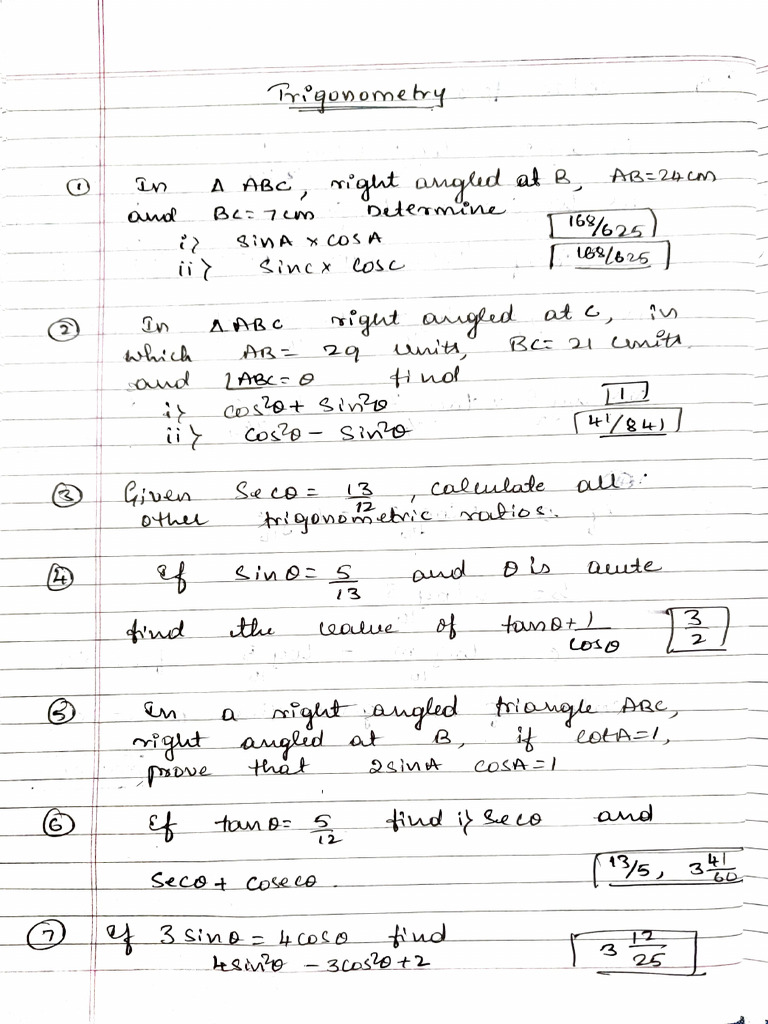 Trigonometry
① In Δ ABC, right angled at B, AB=24cm
and BC=7cm Determine
i> sinA x cosA 168/625
ii> sinc x cosc 168/625
② In Δ ABC right angled at C, in
which AB= 29 units, BC= 21 units
and ∠ABC=θ find
i> cos²θ + sin²θ 1
ii> cos²θ - sin²θ 41/841
③ Given Secθ = 13/12, calculate all
other trigonometric ratios.
④ If sinθ= 5/13 and θ is acute
find the value of tanθ+1/cosθ 3/2
⑤ In a right angled triangle ABC,
right angled at B, if cotA=1,
prove that 2sinA cosA=1
⑥ If tanθ= 5/12 find i> Secθ and
Secθ + cosecθ. 13/5, 3 41/60
⑦ If 3sinθ = 4cosθ find 3 12/25
4sin²θ - 3cos²θ+2